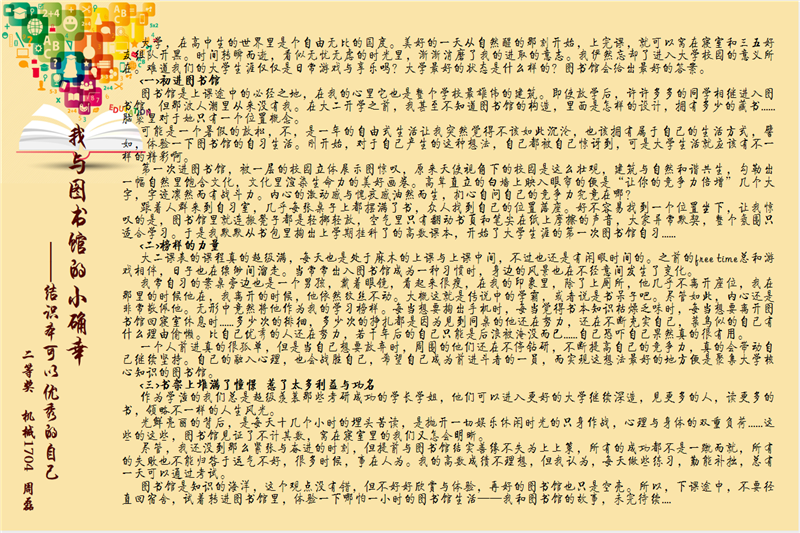 我与图书馆的小确幸
——结识本可以优秀的自己
二等奖 机械1704 周磊
大学，在高中生的世界里是个自由无比的国度。美好的一天从自然醒的那刻开始，上完课，就可以窝在寝室和三五好
友组队开黑。时间转瞬而逝，看似无忧无虑的时光里，渐渐消磨了我的进取的意志。我俨然忘却了进入大学校园的意义所
在。难道我们的大学生涯仅仅是日常游戏与享乐吗？大学最好的状态是什么样的？图书馆会给出最好的答案。
(一)初进图书馆
图书馆是上课途中的必经之地，在我的心里它也是整个学校最雄伟的建筑。即使放学后，许许多多的同学相继进入图
书馆，但那波人潮里从来没有我。在大二开学之前，我甚至不知道图书馆的构造，里面是怎样的设计，拥有多少的藏书……
脑袋里对于她只有一个位置概念。
可能是一个暑假的放松，不，是一年的自由式生活让我突然觉得不该如此沉沦，也该拥有属于自己的生活方式，譬
如，体验一下图书馆的自习生活。刚开始，对于自己产生的这种想法，自己都被自己惊讶到，可是大学生活就应该有不一
样的精彩啊。
第一次进图书馆，被一层的校园立体展示图惊叹，原来天使视角下的校园是这么壮观，建筑与自然和谐共生，勾勒出
一幅自然里饱含文化，文化里渲染生命力的美好画卷。高耸直立的白墙上映入眼帘的便是“让你的竞争力倍增”几个大
字，字迹凛然而有战斗力。内心的激动感与慌张感油然而生，扪心自问自己的竞争力究竟在哪？
跟着人群来到自习室，几乎每张桌子上都摆满了书，众人找到自己的位置落座。好不容易找到一个位置坐下，让我惊
叹的是，图书馆里就连搬凳子都是轻挪轻放，空气里只有翻动书页和笔尖在纸上摩擦的声音，大家异常默契，整个氛围只
适合学习。于是我默默从书包里掏出上学期挂科了的高数课本，开始了大学生涯的第一次图书馆自习……
(二)榜样的力量
大二课表的课程真的超级满，每天也是处于麻木的上课与上课中间，不过也还是有闲暇时间的。之前的free time总和游
戏相伴，日子也在缘隙间溜走。当常常出入图书馆成为一种习惯时，身边的风景也在不经意间发生了变化。
我常自习的桌旁边也是一个男孩，戴着眼镜，看起来很瘦，在我的印象里，除了上厕所，他几乎不离开座位，我在
那里的时候他在，我离开的时候，他依然纹丝不动。大概这就是传说中的学霸，或者说是书呆子吧。尽管如此，内心还是
非常敬佩他。无形中竟然将他作为我的学习榜样。每当想要掏出手机时，每当觉得书本知识枯燥乏味时，每当想要离开图
书馆回寝室休息时……多少次的徘徊，多少次的挣扎都是因为见到同桌的他还在努力，还在不断充实自己，菜鸟似的自己有
什么理由偷懒。比自己优秀的人还在努力，若干年后的自己只能是后浪被淹没而已……自己恐吓自己果然真的很有用。
一个人前进真的很孤单，但是当自己想要放弃时，周围的他们还在不停钻研，不断提高自己的竞争力，真的会带动自
己继续坚持。自己的融入心理，也会战胜自己，希望自己成为前进斗者的一员，而实现这想法最好的地方便是聚集大学核
心知识的图书馆。
(三)书架上堆满了憧憬 惹了太多利益与功名
作为学渣的我们总是超级羡慕那些考研成功的学长学姐，他们可以进入更好的大学继续深造，见更多的人，读更多的
书，领略不一样的人生风光。
光鲜亮丽的背后，是每天十几个小时的埋头苦读，是抛开一切娱乐休闲时光的只身作战，心理与身体的双重负荷……这
些的这些，图书馆见证了不计其数，窝在寝室里的我们又怎会明晰。
尽管，我还没到那么紧张与奋进的时刻，但提前与图书馆结实善缘不失为上上策，所有的成功都不是一蹴而就，所有
的失败也不能归咎于运气不好，很多时候，事在人为。我的高数成绩不理想，但我认为，每天做些练习，勤能补拙，总有
一天可以通过考试。
图书馆是知识的海洋，这个观点没有错，但不好好欣赏与体验，再好的图书馆也只是空壳。所以，下课途中，不要径
直回宿舍，试着转进图书馆里，体验一下哪怕一小时的图书馆生活——我和图书馆的故事，未完待续……